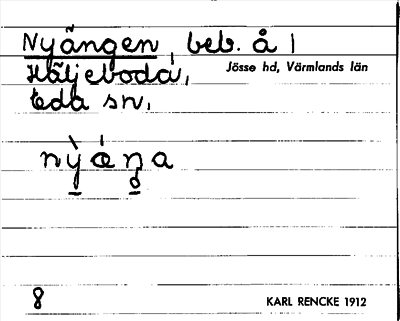 Nyängen, beb. å |
Häljeboda,
Jösse hd, Värmlands län
Eda sn,
8
KARL RENCKE 1912